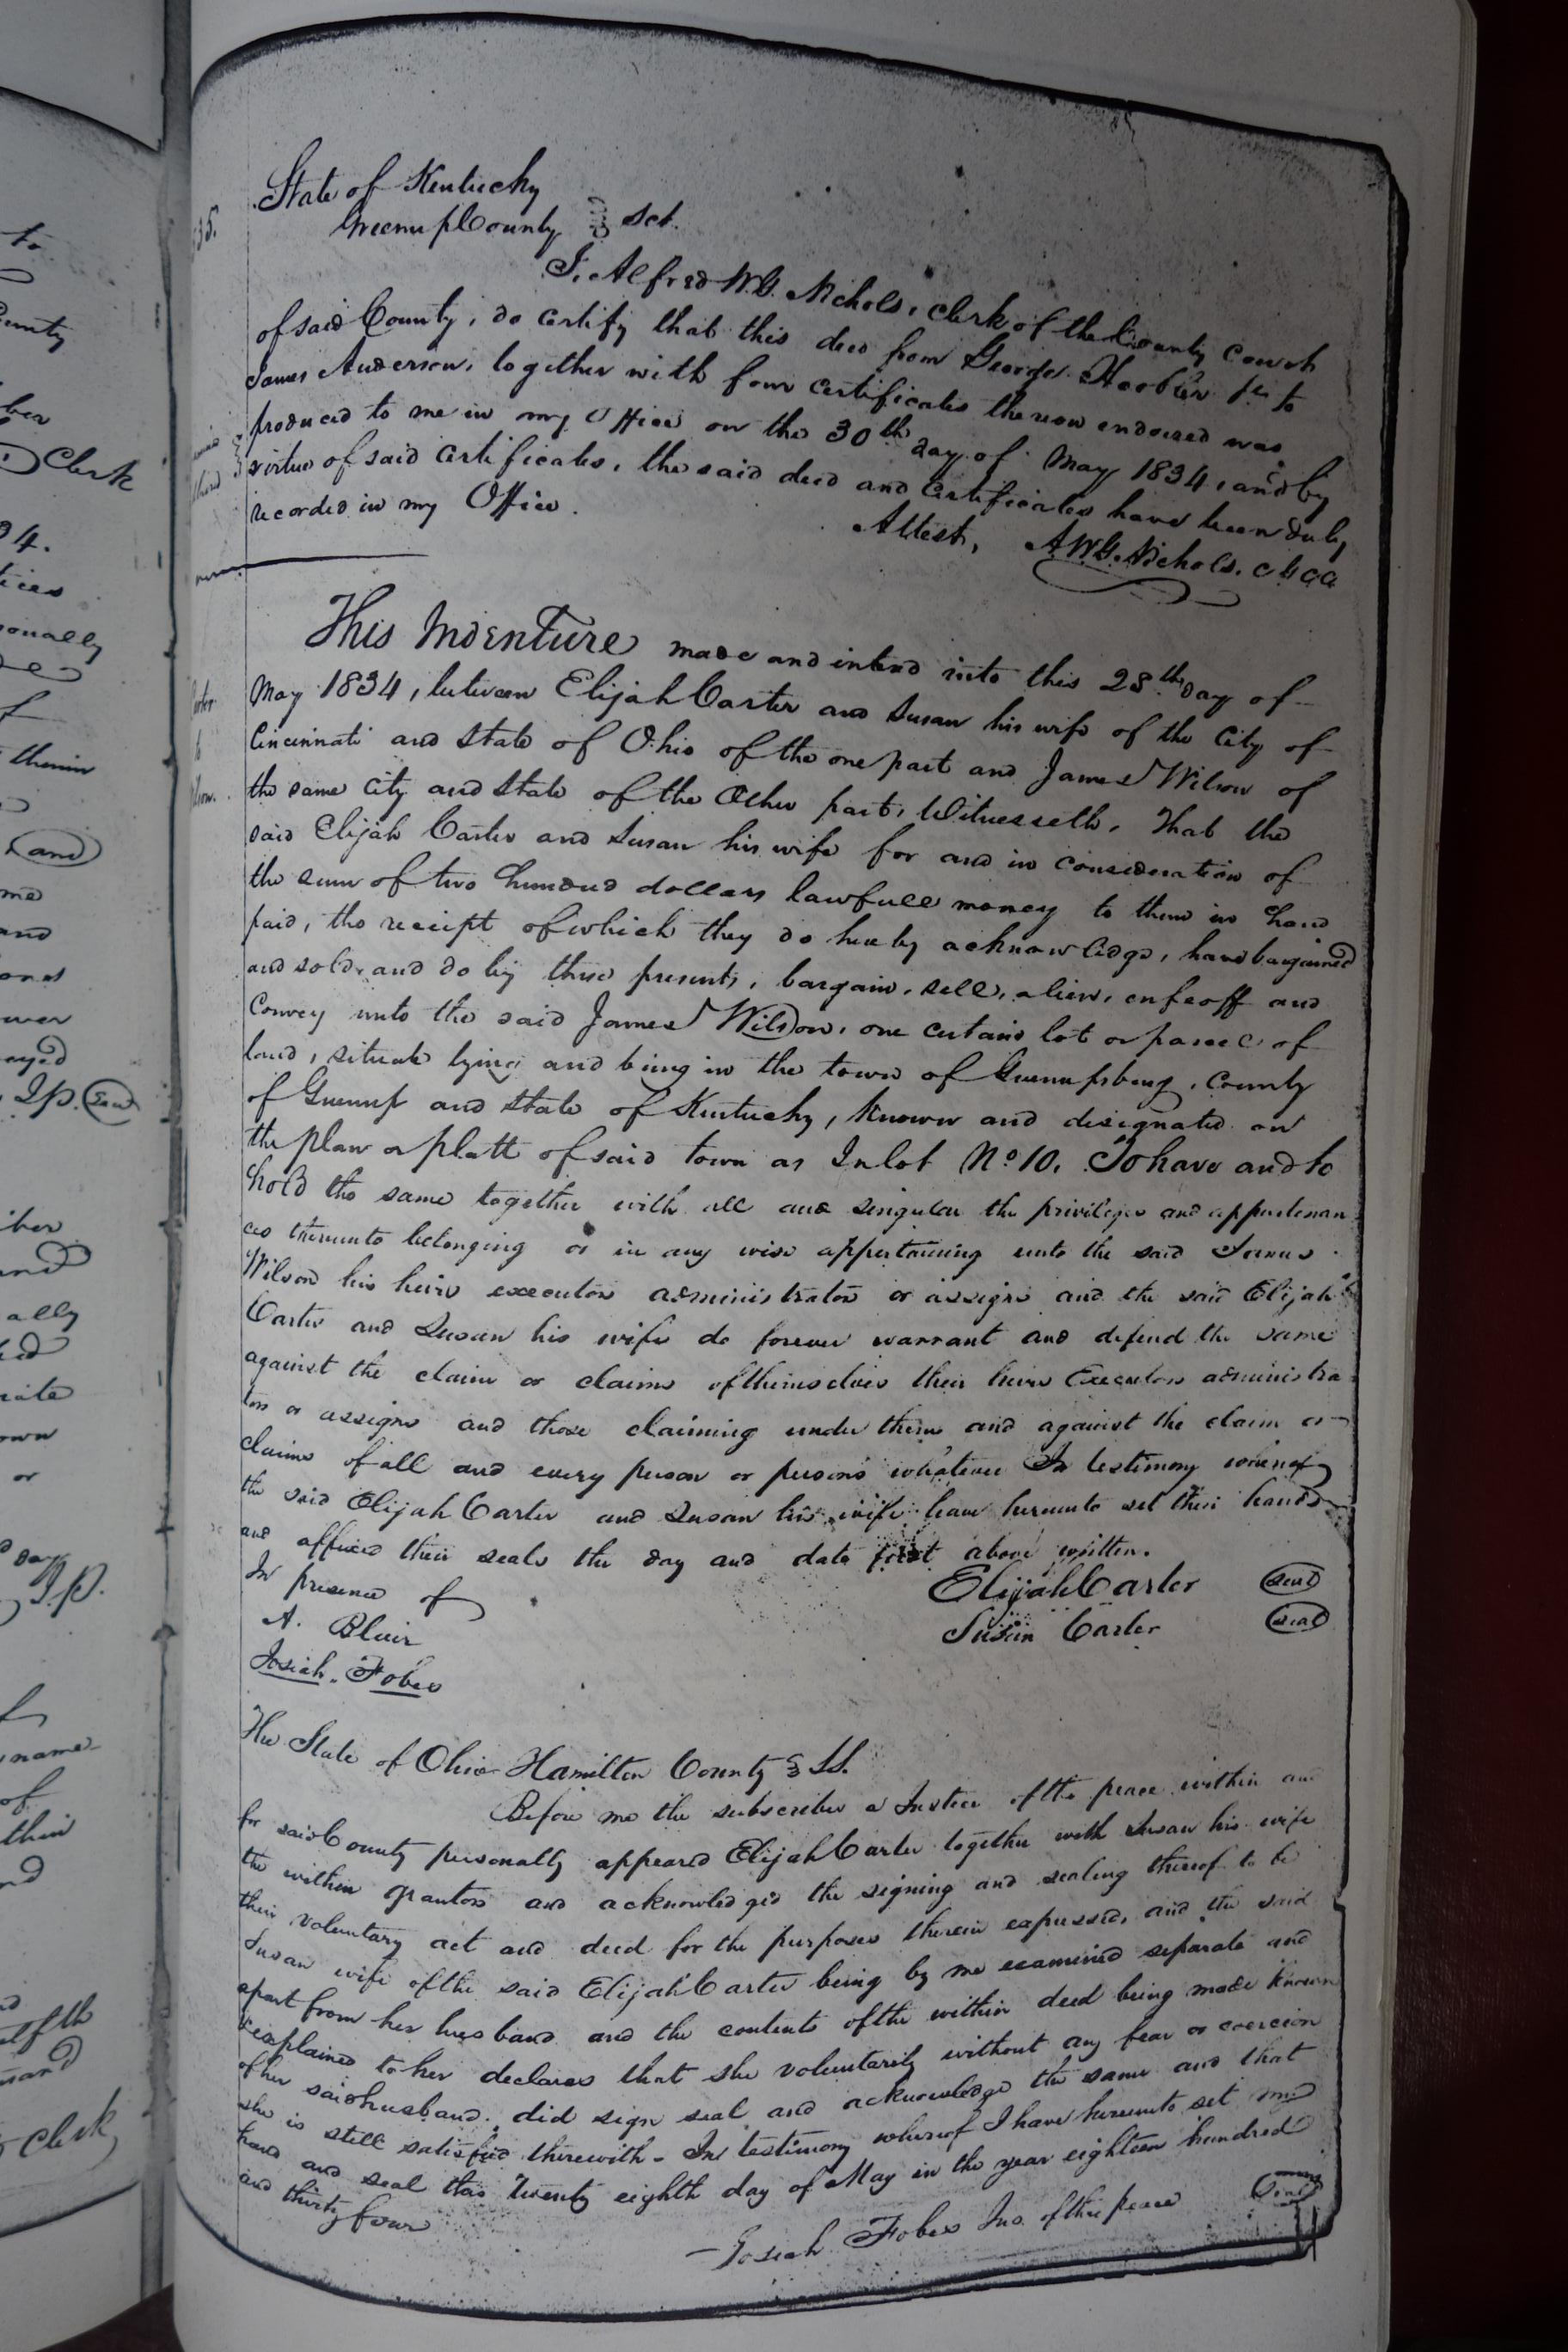 State of Kentucky
Greenup County Sct.
I, Alfred W.G. Nichols, Clerk of the County Court
of said County, do certify that this deed from George Hoobler jr to
James Anderson, together with four certificates thereon endorsed was
produced to me in my Office on the 30th day of May 1834, and by
virtue of said certificates, the said deed and certificates have been duly
recorded in my Office.
Attest, A.W.G. Nichols. c g c c
This Indenture made and intend into this 28th day of
May 1834, between Elijah Carter and Susan his wife of the City of
Cincinnati and State of Ohio of the one part and James Wilson of
the same City and State of the Other part, Witnesseth, That the
said Elijah Carter and Susan his wife for and in consideration of
the sum of two hundred dollars lawfull money to them in hand
paid, the receipt of which they do hereby acknowledge, have bargained
and sold, and do by these presents, bargain, sell, alien, enfeoff and
Convey unto the said James Wilson, one certain lot or parcel of
land, situate lying and being in the town of Greenupsburg, County
of Greenup and State of Kentucky, known and designated on
the plan or platt of said town as Inlot No 10. To have and to
hold the same together with all and singular the privileges and appurtenan
ces thereunto belonging or in any wise appertaining unto the said James
Wilson his heirs executors administrators or assigns and the said Elijah
Carter and Susan his wife do forever warrant and defend the same
against the claim or claims of themselves their heirs Executors administra
tors or assigns and those claiming under them and against the claim or
claims of all and every person or persons whatever In testimony whereof
the said Elijah Carter and Susan his wife have hereunto set their hands
and affixed their seals the day and date first above written.
In presence of Elijah Carter Seal
A. Blair Susan Carter Seal
Josiah Fobes
The State of Ohio Hamilton County SS.
Before me the subscriber a Justice of the peace within and
for said County personally appeared Elijah Carter together with Susan his wife
the within grantors and acknowledged the signing and sealing thereof to be
their voluntary act and deed for the purposes therein expressed, and the said
Susan wife of the said Elijah Carter being by me examined separate and
apart from her husband and the contents of the within deed being made known
& explained to her declares that she voluntarily without any fear or coercion
of her said husband, did sign seal and acknowledge the same and that
she is still satisfied therewith - In testimony whereof I have hereunto set my
hand and seal this Twenty eighth day of May in the year eighteen hundred
and thirty four
Josiah Fobes Jus. of the peace Seal